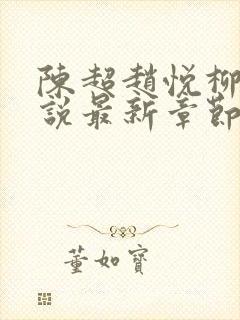 陳超趙悅柳
說最新章節
董如寶